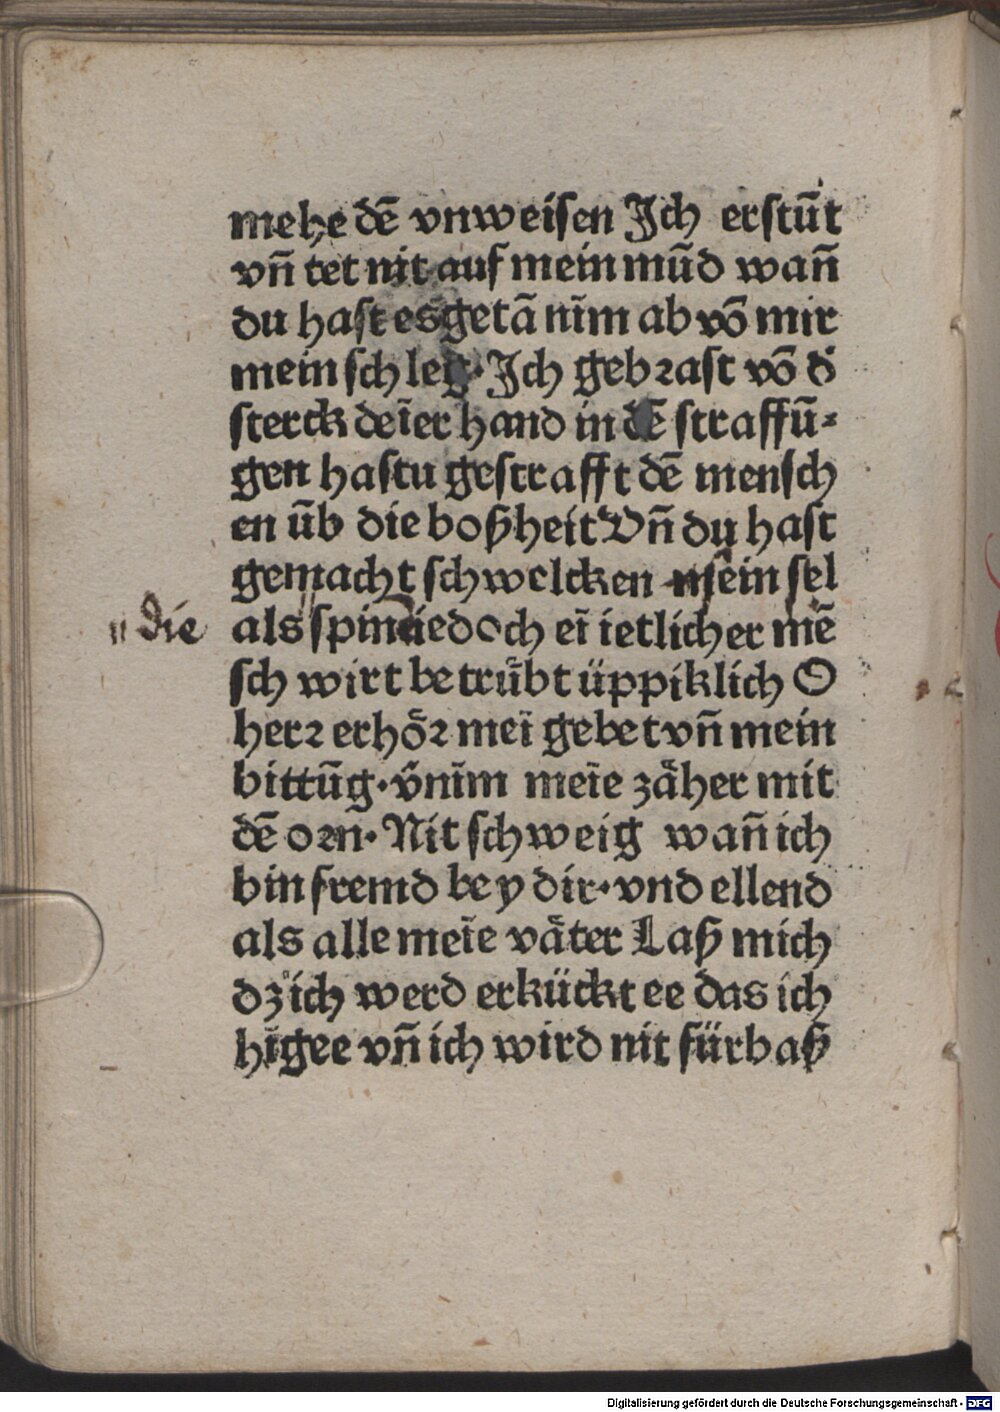 mehe dē vnweisen Jch erstūt
vn̄ tet nit auf mein mūd wan̄
du hast es getā nīm ab vō mir
mein schleg · Jch gebꝛast vō d̕
sterck deīer hand in dē straffū⸗
gen hastu gestrafft dē mensch
en ūb die boßheit Vn̄ du hast
gemacht schwelcken mein sel
"die als "spinn iedoch eī ietlicher mē
sch wirt betrübt üppiklich O
herꝛ erhöꝛ meī gebet vn̄ mein
bittūg · v̄nīm meīe zäher mit
dē oꝛn · Nit schweig wan̄ ich
bin fremd bey dir · vnd ellend
als alle meīe väter Laß mich
dz ich werd erkückt ee das ich
hīgee vn̄ ich wird nit fürbaß
Digitalisierung gefördert durch die Deutsche Forschungsgemeinschaft - DFG